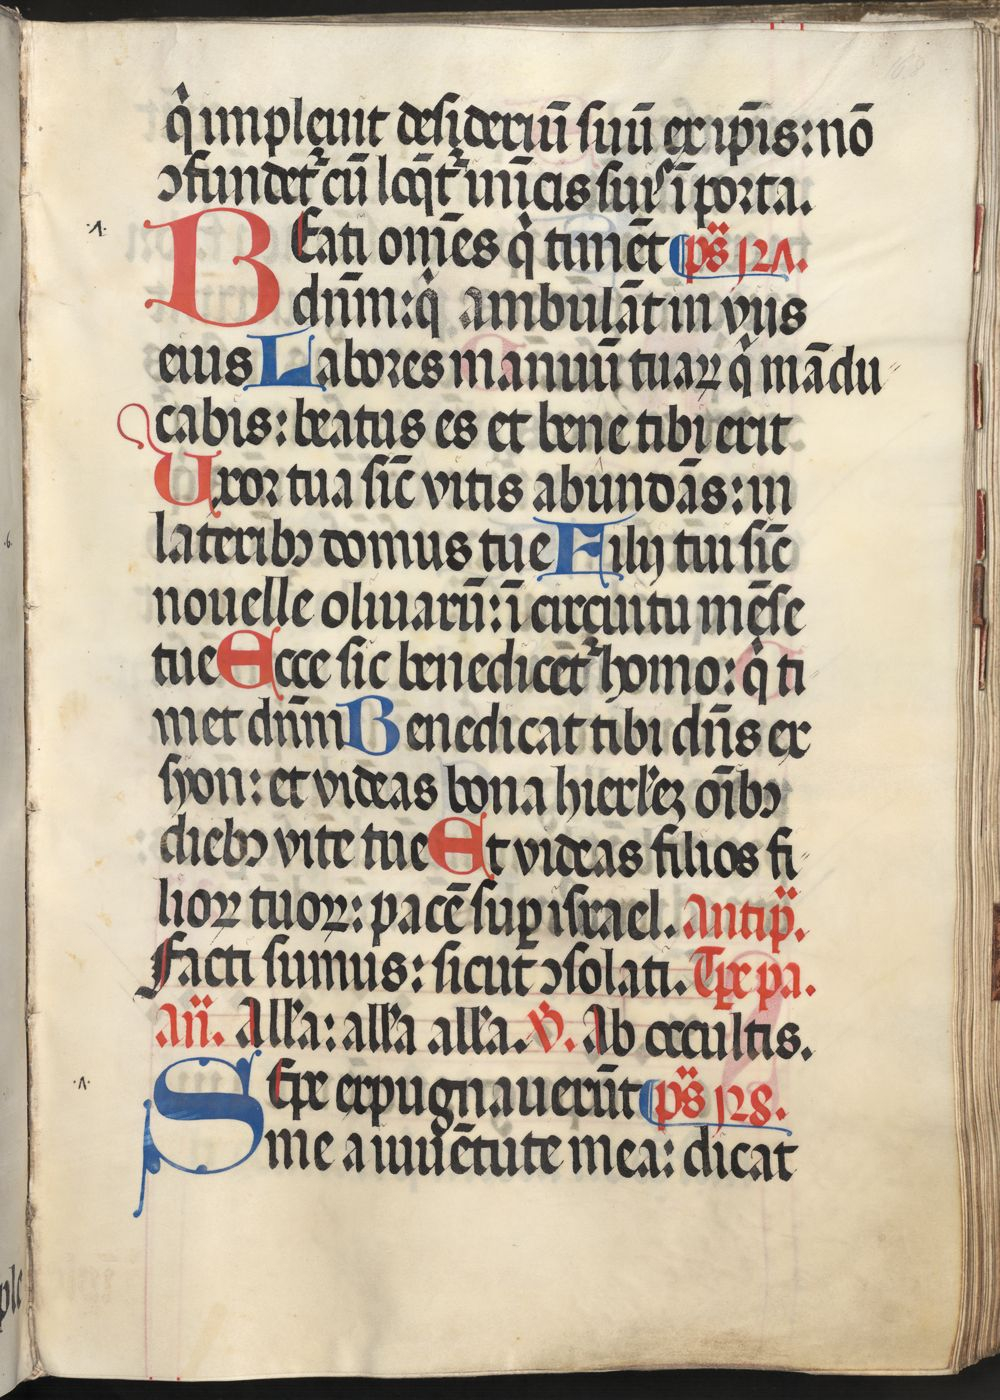 q̇ impleuit desideriū suū ex ip̄is: nō
ɔfundet᷑ cū loq̄t᷑ inīcis suis ī porta.
Beati om̄es q̇ timēt ps̄ 127.
dn̄m: q̇ ambulāt in vijs
eius Labores manuū tuaꝝ q̇ mādu
cabis: beatus es et bene tibi erit
Uxor tua sic̄ vitis abundās: in
lateribꝰ domus tue Filij tui sic̄
nouelle oliuarū: ī circuitu mēse
tue Ecce sic benedicet᷑ homo: q̇ ti
met dn̄m Benedicat tibi dn̄s ex
syon: et videas bona hierłeꝫ oībꝰ
diebꝰ vite tue Et videas filios fi
lioꝝ tuoꝝ: pacē suꝑ israel. Antip̄.
Facti sumus: sicut ɔsolati. Tp̄e pa.
an̄. Alła: alła alła. V̇. Ab occultis.
Sepe expugnauerūt ps̄ 128.
me a iuuētute mea: dicat